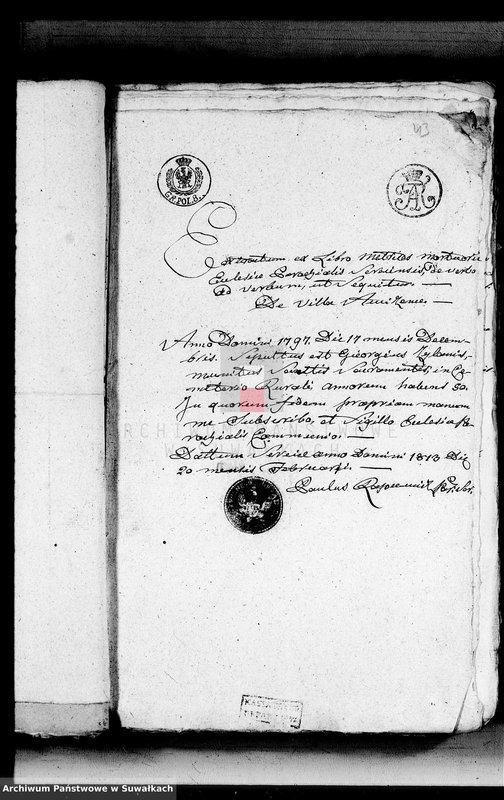 43
G.F.POL.B.
Extractum ex Libro Metrices mortuorum
Eclesiæ Parochialis Sereiensis, de verbo
ad verbum, ut Sequitur.
De Villa
Anno Domini 1797. Die 17 mensis Decem-
bris. Sepultus est Georgius
munitus Sacramentis, in Ce-
meterio Rurali annorum habens 50.
In quorum fidem propriam manum
me Subscribo, et Sigillo Eclesia Pa-
rochialis Communio.
Dattum Sereiæ anno Domini 1813 Die
20 mensis Februari.
Paulus
ARCHIWUM PAŃSTWOWE
W SUWAŁKACH
Archiwum Państwowe w Suwałkach